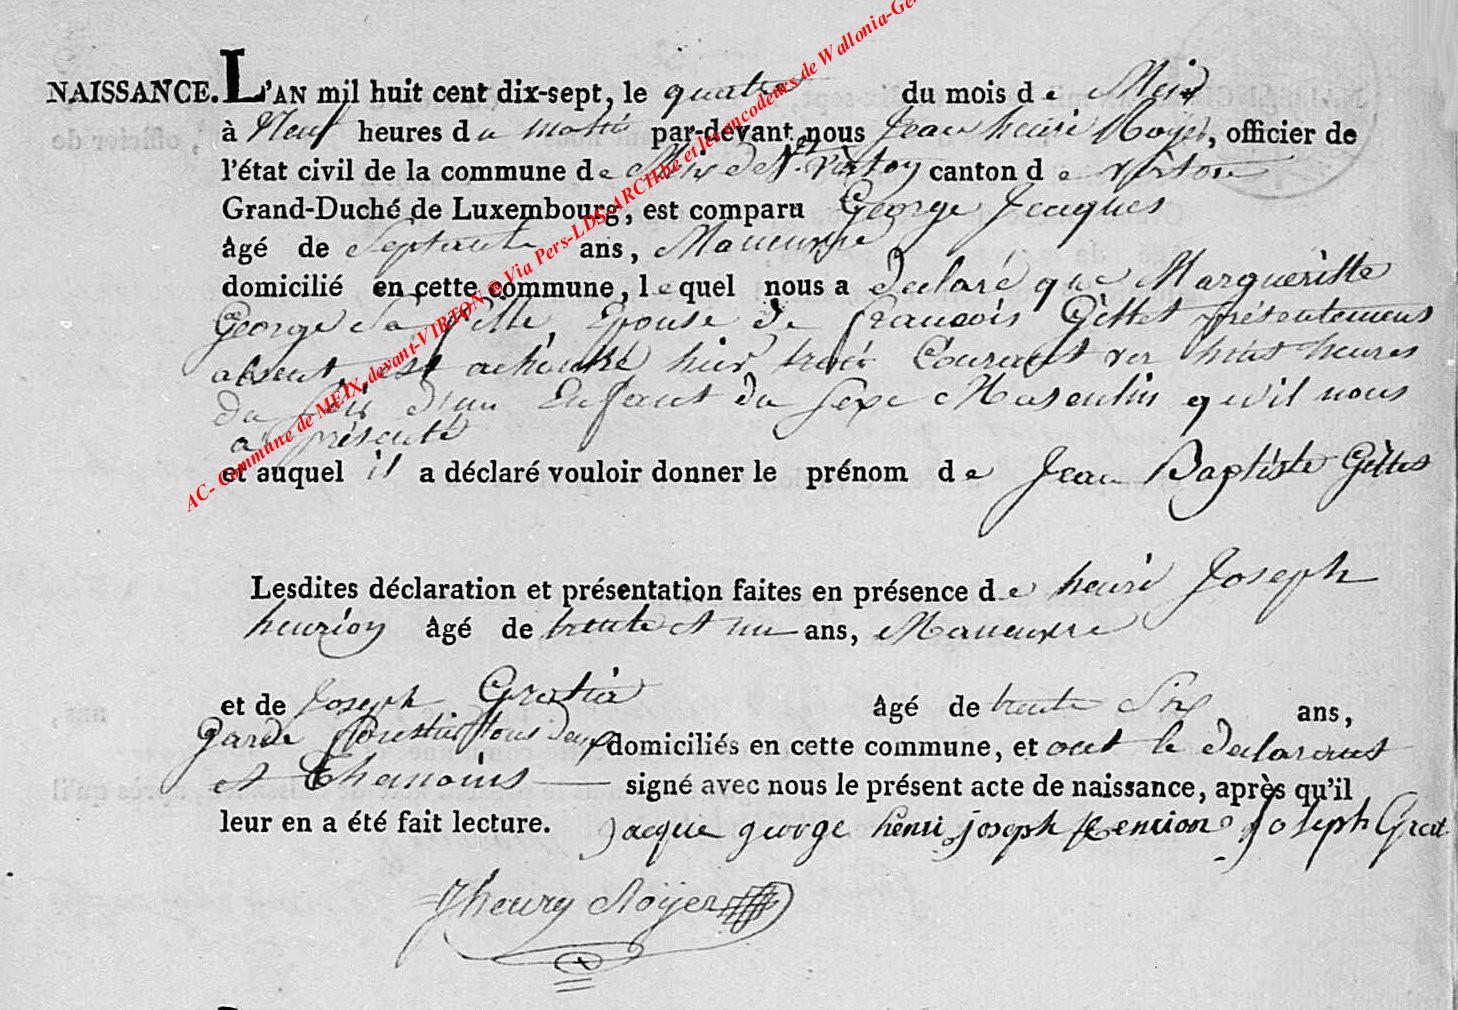 NAISSANCE. L'AN mil huit cent dix-sept, le quatre du mois de Mei
à Neuf heures du matin par-devant nous Jean henri Royer, officier de
l'état civil de la commune de Meix de Vt. Virton canton de virton
Grand-Duché de Luxembourg, est comparu George Jacques
âgé de septante ans, Maneuvre
domicilié en cette commune, lequel nous a declaré que Margueritte
George Sa fille Epouse de francois Gillet présentement
absent est achouché hier trois Courant ver huit heures
du soir d'un Enfant du sexe Masculin qu'il nous
a présenté
et auquel il a déclaré vouloir donner le prénom de Jean Baptiste Gillet
Lesdites déclaration et présentation faites en présence de henri Joseph
henrion âgé de trente et un ans, Maneuvre
et de Joseph Gratia âgé de trente Six ans,
Garde forestier tous deux domiciliés en cette commune, et ont le declarant
et themoins signé avec nous le présent acte de naissance, après qu'il
leur en a été fait lecture. jacque george henri joseph henrion joseph Grat
Jhenry Royer
AC- Commune de MEIX devant-VIRTON @ Via Pers-LDS-ARCH.be et les encodeurs de Wallonia-Ge